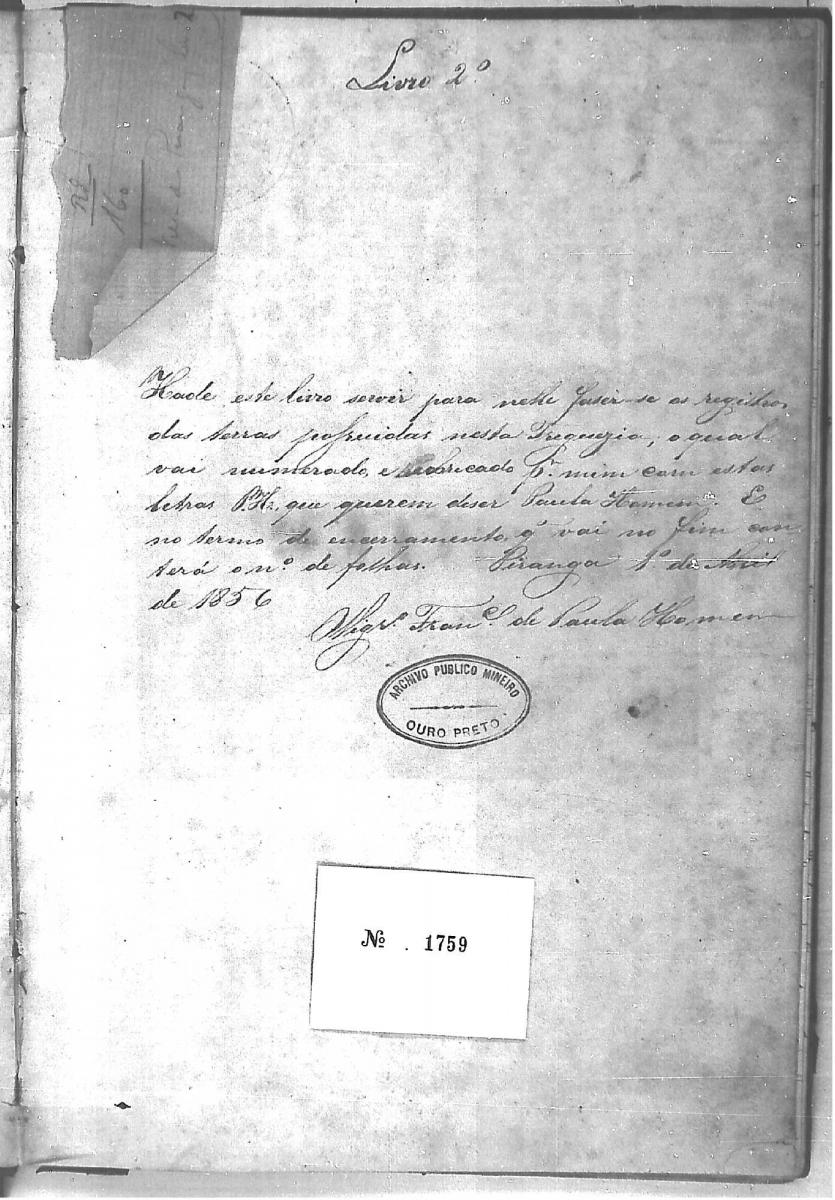 Livro 2º
Rd
160
Hade este livro servir para nelle faser-se os registros
das terras possuidas nesta Freguezia, o qual
vai numerado, e rubricado pr. mim com estas
letras P.H., que querem diser Paula Homem. E
no termo de encerramento, q' vai no fim con
terá o nº. de folhas. Piranga 1º de Abril
de 1856
Franco. de Paula Homem
ARCHIVO PUBLICO MINEIRO
OURO PRETO
№ . 1759